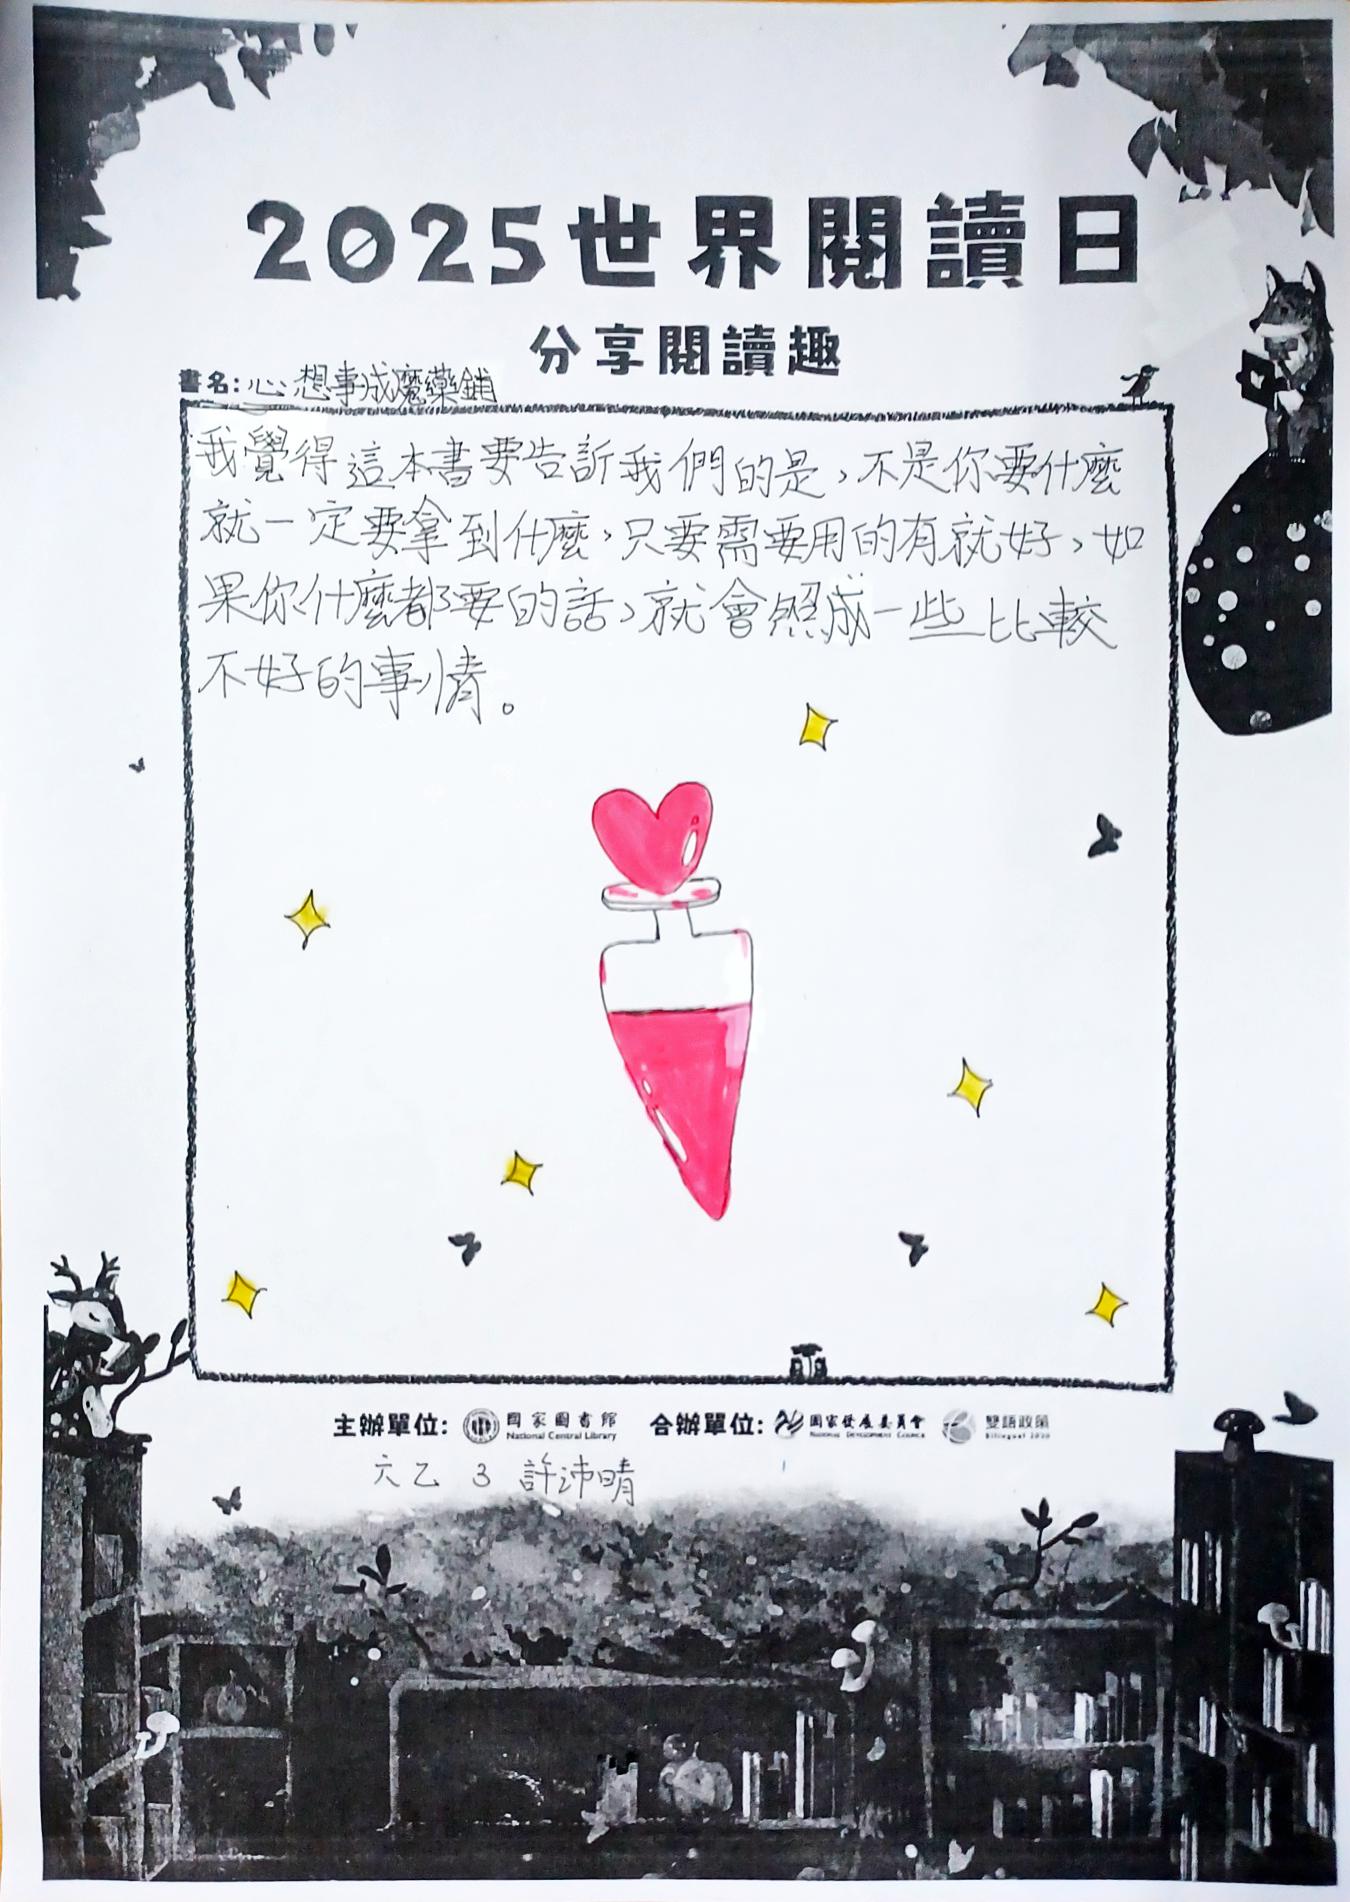 2025世界閱讀日
分享閱讀趣
書名:心想事成魔藥鋪
我覺得這本書要告訴我們的是,不是你要什麼
就一定要拿到什麼,只要需要用的有就好,如
果你什麼都要的話,就會照成一些比較
不好的事情。
主辦單位: 國家圖書館 National Central Library 合辦單位: 國家發展委員會 National Development Council 雙語政策 Bilingual 2030
六乙 3 許沛晴